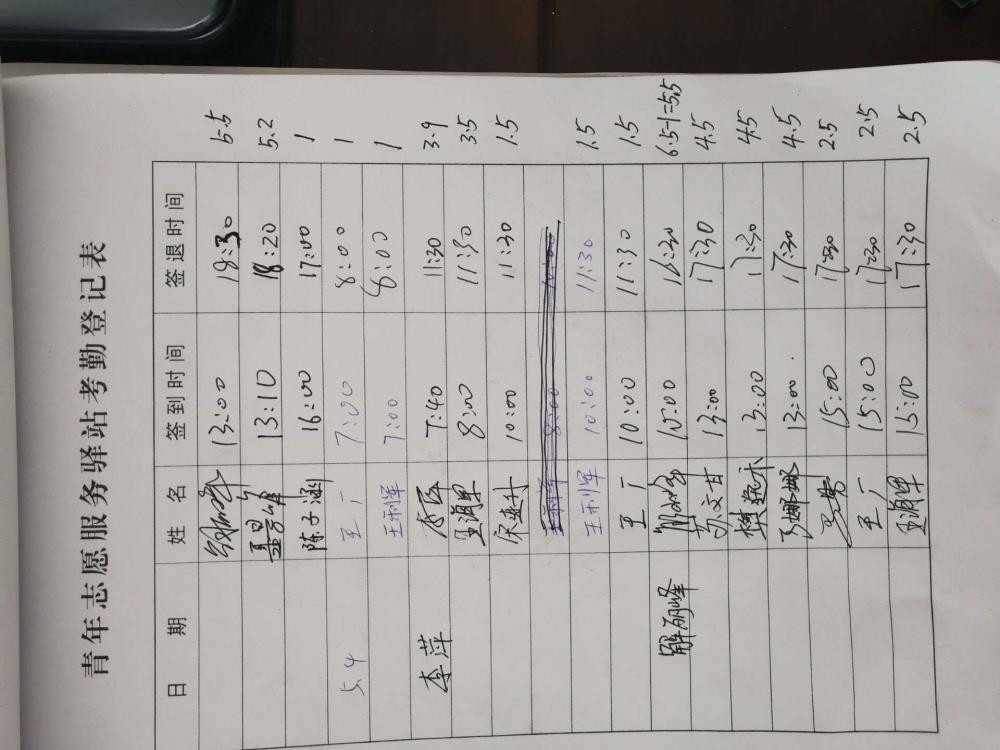 青年志愿服务驿站考勤登记表
日 期 姓 名 签到时间 签退时间
13:00 18:30 5.5
13:10 18:20 5.2
陈子涵 16:00 17:00 1
5.4 王广 7:00 8:00 1
王利军 7:00 8:00 1
李萍 7:40 11:30 3.9
8:00 11:30 3.5
10:00 11:30 1.5
王利军 8:00
王利军 10:00 11:30 1.5
王广 10:00 11:30 1.5
解丽峰 10:00 16:30 6.5-1=5.5
苏文甘 13:00 17:30 4.5
13:00 17:30 4.5
13:00 17:30 4.5
15:00 17:30 2.5
王广 15:00 17:30 2.5
15:00 17:30 2.5